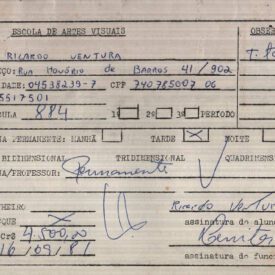 ESCOLA DE ARTES VISUAIS
OBSE
RICARDO VENTURA
ÇO: RUA HONÓRIO de BARROS 41/902
IDADE: 04538239-7 CPF 740785007 06
5517501
CULA 884 1º 2º 3º PERÍODO
NA PERMANENTE: MANHÃ TARDE X NOITE
BIDIMENSIONAL TRIDIMENSIONAL QUADRIMENS
NA/PROFESSOR: Permanente
HEIRO
QUE X
Ricardo Ventur
assinatura do alun
CR$ 4.500,00
16/09/81
assinatura do func